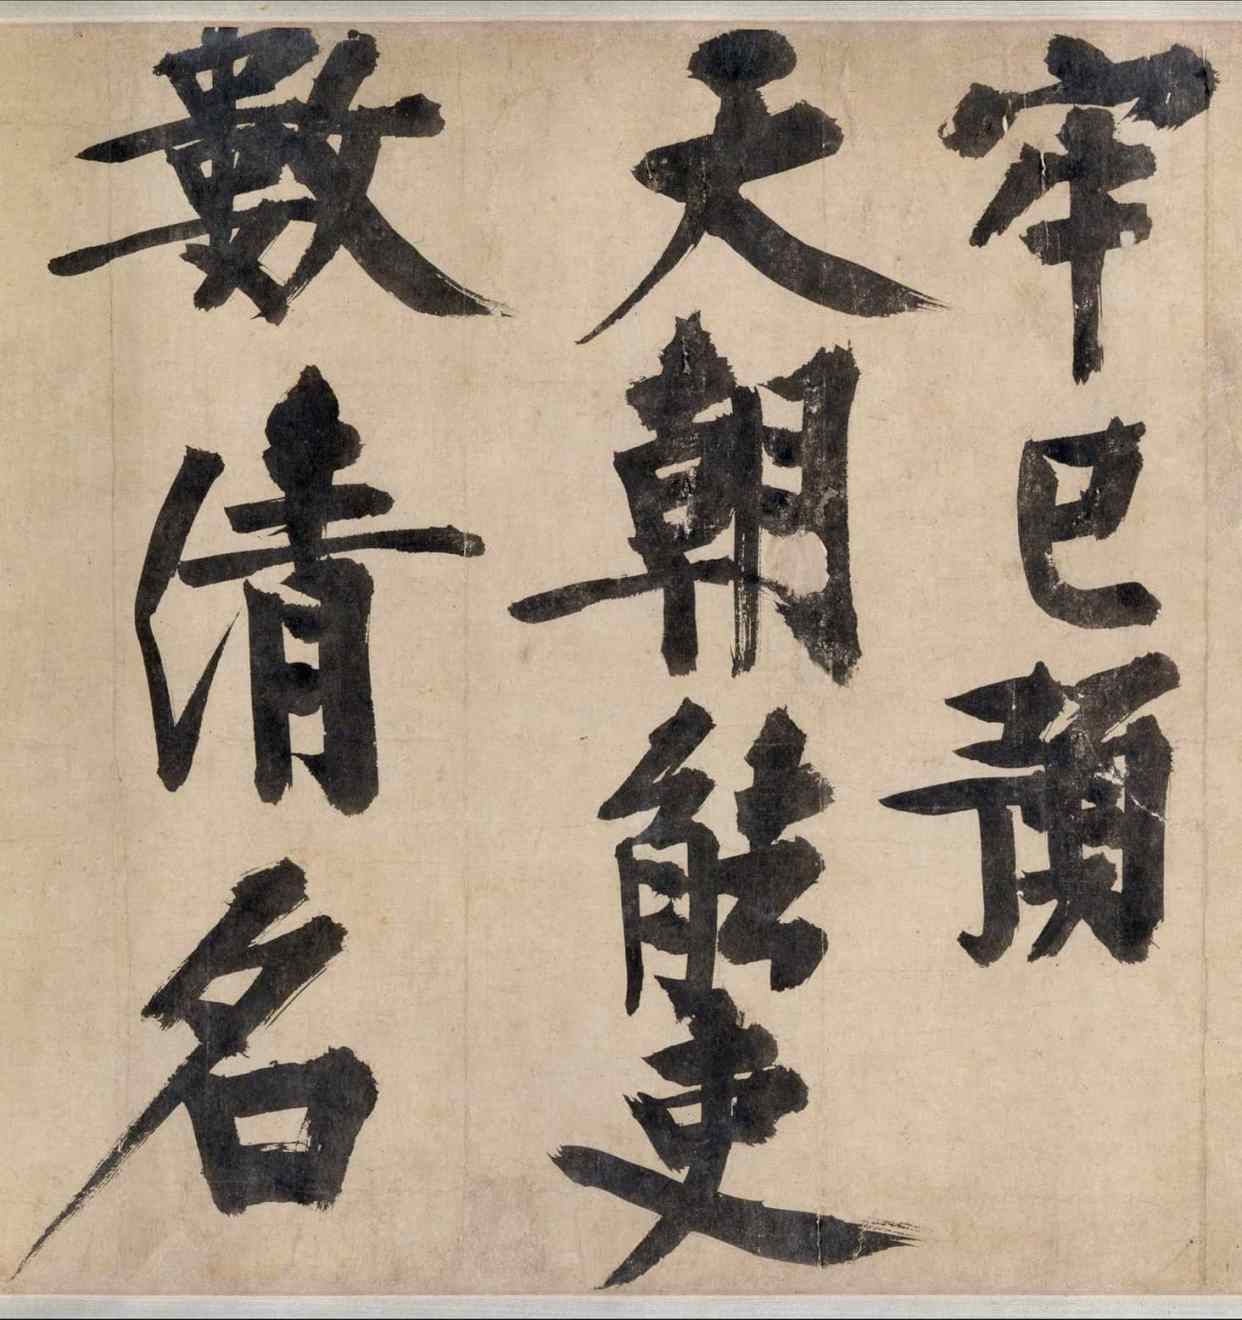 牢已預
天朝能吏
數清名